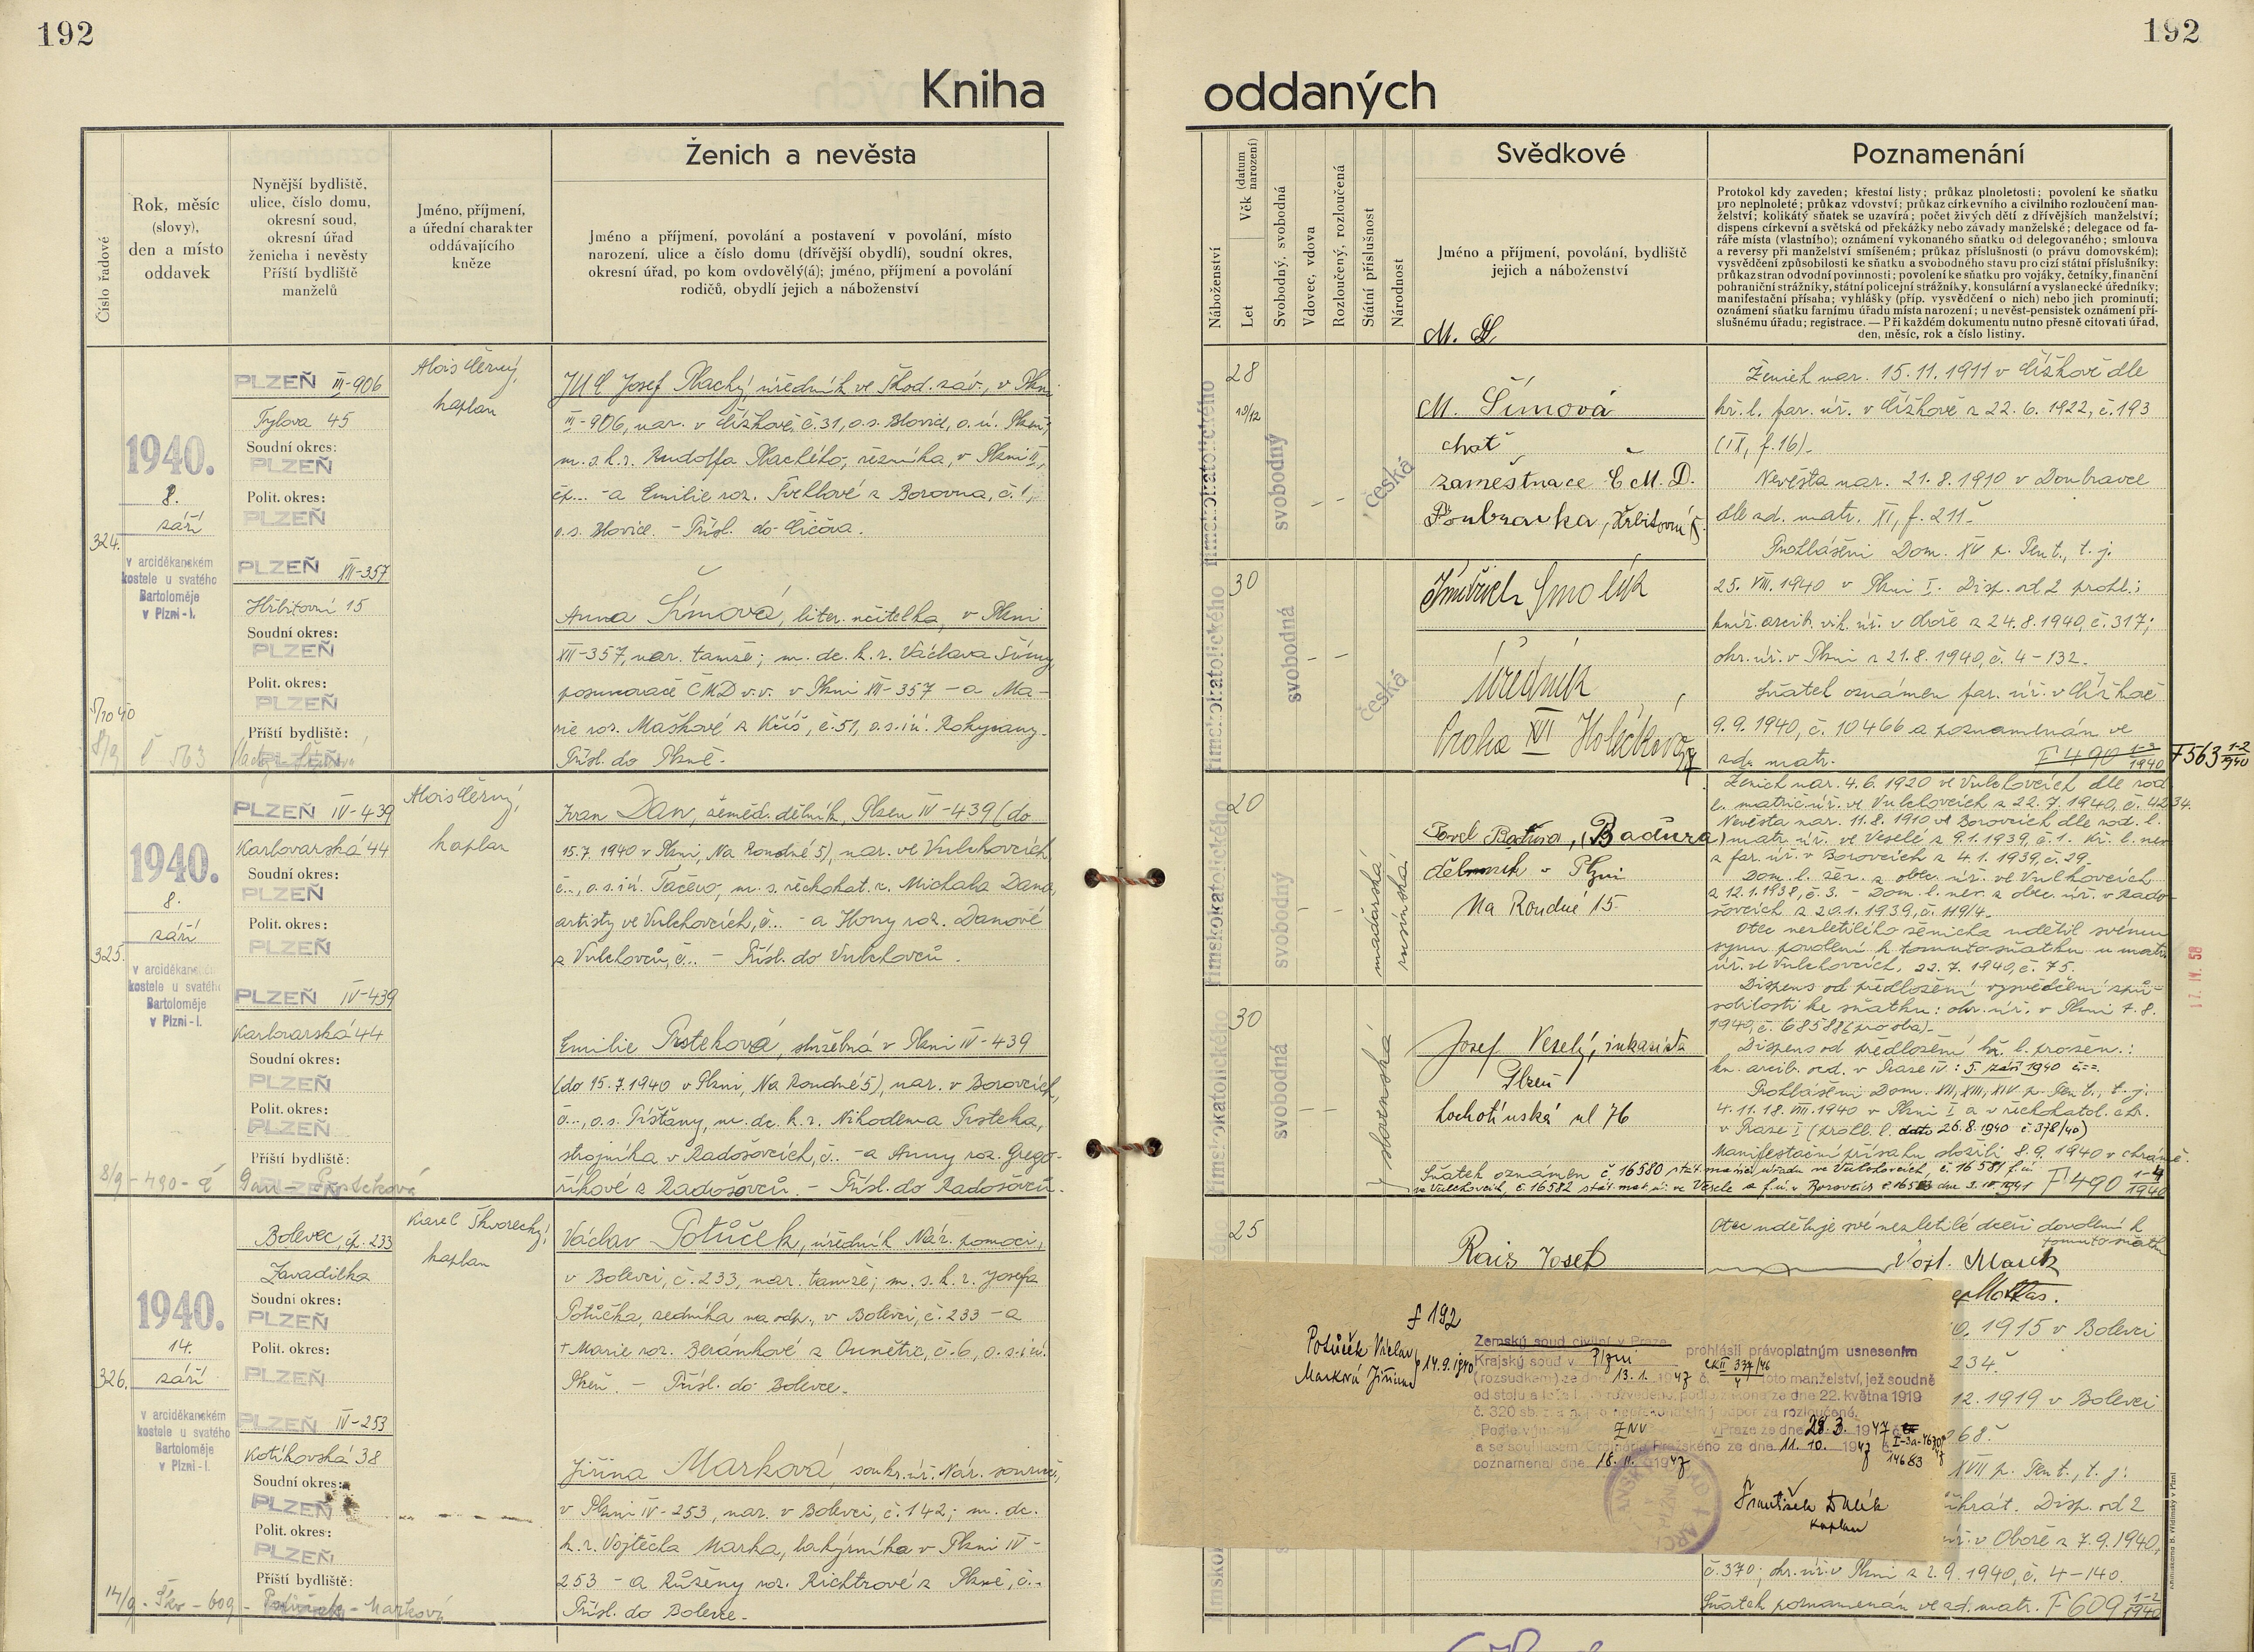 192
192
Kniha
oddaných
Číslo řadové
Rok, měsíc
(slovy),
den a místo
oddavek
Nynější bydliště,
ulice, číslo domu,
okresní soud,
okresní úřad
ženicha i nevěsty
Příští bydliště
manželů
Jméno, příjmení,
a úřední charakter
oddávajícího
kněze
Ženich a nevěsta
Jméno a příjmení, povolání a postavení v povolání, místo
narození, ulice a číslo domu (dřívější obydlí), soudní okres,
okresní úřad, po kom ovdovělý(á); jméno, příjmení a povolání
rodičů, obydlí jejich a náboženství
324.
1940.
8.
září
v arciděkanském
kostele u svatého
Bartoloměje
v Plzni-I.
PLZEŇ III-906
Tylova 45
Soudní okres:
PLZEŇ
Polit. okres:
PLZEŇ
PLZEŇ XII-357
Hřbitovní 15
Soudní okres:
PLZEŇ
Polit. okres:
PLZEŇ
Příští bydliště:
PLZEŇ
Alois Černý,
kaplan
JUC Josef Plachý, úředník ve Škod. záv., v Plzni
III-906, nar. v Čížkově, č. 31, o.s. Blovice, o. ú. Plzeň,
m. s. k. r. Rudolfa Plachého, řezníka, v Plzni II,
čp... - a Emilie roz. Švehlové z Borovna, č. 1,
o.s. Blovice. - Přísl. do Čičova.
Anna Šímová, liter. učitelka, v Plzni
XII-357, nar. tamže; m. dc. k. r. Václava Šímy,
posunovače ČMD v.v. v Plzni XII-357 - a Ma-
rie roz. Maškové z Klíš, č. 51, o.s. i ú. Rokycany.
Přísl. do Plzně.
325.
1940.
8.
září
v arciděkanském
kostele u svatého
Bartoloměje
v Plzni-I.
PLZEŇ IV-439
Karlovarská 44
Soudní okres:
PLZEŇ
Polit. okres:
PLZEŇ
PLZEŇ IV-439
Karlovarská 44
Soudní okres:
PLZEŇ
Polit. okres:
PLZEŇ
Příští bydliště:
PLZEŇ
Alois Černý,
kaplan
Ivan Dan, zeměd. dělník, Plzeň IV-439 (do
15.7.1940 v Plzni, Na Roudné 5), nar. ve Vulchovcích
č..., o.s. i ú. Tačevo, m. s. řeckokat. r. Michala Dana,
artisty ve Vulchovcích, č... - a Ilony roz. Danové
z Vulchovců, č... - Přísl. do Vulchovců.
Emilie Trsteková, služebná v Plzni IV-439
(do 15.7.1940 v Plzni, Na Roudné 5), nar. v Borovcích,
č..., o.s. Píšťany, m. dc. k. r. Nikodema Trsteka,
strojníka v Radošovcích, č.. - a Anny roz. Grego-
říkové z Radošovců. - Přísl. do Radošovců.
326.
1940.
14.
září
v arciděkanském
kostele u svatého
Bartoloměje
v Plzni-I.
Bolevec, čp. 233
Zavadilka
Soudní okres:
PLZEŇ
Polit. okres:
PLZEŇ
PLZEŇ IV-253
Kotíkovská 38
Soudní okres:
PLZEŇ
Polit. okres:
PLZEŇ
Příští bydliště:
Karel Škvorecký,
kaplan
Václav Potůček, úředník Nár. pomoci,
v Bolevci, č. 233, nar. tamže; m. s. k. r. Josefa
Potůčka, zedníka na odp., v Bolevci, č. 233 - a
† Marie roz. Beránkové z Ounětic, č. 6, o. s. i ú.
Plzeň. - Přísl. do Bolevce.
Jiřina Marková, soukr. úř. Nár. souruč.,
v Plzni IV-253, nar. v Bolevci, č. 142; m. dc.
k. r. Vojtěcha Marka, lakýrníka v Plzni IV-
253 - a Růženy roz. Richtrové z Plzně, č..
Přísl. do Bolevce.
Náboženství
Věk (datum narození)
Let
Svobodný, svobodná
Vdovec, vdova
Rozloučený, rozloučená
Státní příslušnost
Národnost
Svědkové
Jméno a příjmení, povolání, bydliště
jejich a náboženství
Poznamenání
Protokol kdy zaveden; křestní listy; průkaz plnoletosti; povolení ke sňatku
pro neplnoleté; průkaz vdovství; průkaz církevního a civilního rozloučení man-
želství; kolikátý sňatek se uzavírá; počet živých dětí z dřívějších manželství;
dispens církevní a světská od překážky nebo závady manželské; delegace od fa-
ráře místa (vlastního); oznámení vykonaného sňatku od delegovaného; smlouva
a reversy při manželství smíšeném; průkaz příslušnosti (o právu domovském);
vysvědčení způsobilosti ke sňatku a svobodného stavu pro cizí státní příslušníky;
průkaz stran odvodní povinnosti; povolení ke sňatku pro vojáky, četníky, finanční
pohraniční strážníky, státní policejní strážníky, konsulární a vyslanecké úředníky;
manifestační přísaha; vyhlášky (příp. vysvědčení o nich) nebo jich prominutí;
oznámení sňatku farnímu úřadu místa narození; u nevěst-pensistek oznámení pří-
slušnému úřadu; registrace. — Při každém dokumentu nutno přesně citovati úřad,
den, měsíc, rok a číslo listiny.
římskokatolického
28
svobodný
česká
M. Šímová
choť
zaměstnace ČMD.
Doubravka, Hřbitovní
římskokatolického
30
svobodná
česká
Jindřich Smolík
Úředník
Praha XVI Holečkova
Ženich nar. 15.11.1911 v Čížkově dle
kř. l. far. úř. v Čížkově z 22.6.1922, č. 193
(IX, f. 16).
Nevěsta nar. 21.8.1910 v Doubravce
dle zd. matr. XI, f. 211.
Prohlášeni Dom. XV p. Pent., t. j.
25. VIII. 1940 v Plzni I. Disp. od 2 prohl.:
kníž. arcib. vik. úř. v Oboře z 24.8.1940, č. 317;
okr. úř. v Plzni z 21.8.1940, č. 4-132.
Sňatek oznámen far. úř. v Čížkově
9.9.1940, č. 10466 a poznamenán ve
zd. matr. F 490 1-2/1940 F 563 1-2/1940
římskokatolického
20
svobodný
maďarská
rusínská
(Baďura)
dělník v Plzni
Na Roudné 15.
římskokatolického
30
svobodná
slovenská
Josef Veselý, inkasista
Plzeň
Lochotínská ul 76
Ženich nar. 4.6.1920 ve Vulchovcích dle rod.
l. matrič. úř. ve Vulchovcích z 22.7.1940, č. 4234.
Nevěsta nar. 11.8.1910 ve Borovcích dle rod. l.
matr. úř. ve Veselé z 9.1.1939, č. 1. Kř. l. nev.
z far. úř. v Borovcích z 4.1.1939, č. 29.
Dom. l. žen. z obec. úř. ve Vulchovcích
z 12.1.1938, č. 3. - Dom. l. nev. z obec. úř. v Rado-
šovcích z 20.1.1939, č. 119/4.
Otec nezletilého ženicha udělil svému
synu povolení k tomuto sňatku u matr.
úř. ve Vulchovcích, 22.7.1940, č. 75.
Dispens od předložení vysvědčení způ-
sobilosti ke sňatku: okr. úř. v Plzni 7.8.
1940, č. 68588 (prosba).
Dispens od předložení kř. l. prosen.:
kn. arcib. ord. v Praze IV: 5. září 1940
Prohlášeni Dom. XII, XIII, XIV. p. Pent., t. j.
4. 11. 18. VIII. 1940 v Plzni I a v řeckokatol. chr.
v Praze I (prohl. l. dato 26.8.1940 č. 378/40)
Manifestační přísahu složili 8.9.1940 v chrámě.
Sňatek oznámen č. 16580 stát. matrič. úřadu ve Vulchovcích, č. 16581 f. ú.
ve Vulchovcích, č. 16582 stát. mat. úř. ve Vesele a f. ú. v Borovcích F 490 1-4/1940
17. IV. 58
25
Rais Josef
Otec uděluje své nezletilé dceři dovolení k
tomuto sňatku
Vojt. Marek
0. 1915 v Bolevci
234.
12.1919 v Bolevci
68.
XVII p. Pent., t. j.
Disp. od 2
úř. v Oboře z 7.9.1940,
č. 370; okr. úř. v Plzni z 2.9.1940, č. 4-140.
Sňatek poznamenán ve zd. matr. F 609 1-2/1940
f 192
Potůček Václav
Marková Jiřina
14.9.1940
Zemský soud civilní v Praze
Krajský soud v Plzni prohlásil právoplatným usnesením
(rozsudkem) ze dne 13.1.1947 č. Ck II 334/46 toto manželství, jež soudně
od stolu a lože bylo rozvedeno, podle zákona ze dne 22. května 1919
č. 320 sb. z. a n. pro nepřekonatelný odpor za rozloučené.
Podle výnosu ZNV v Praze ze dne 28.3.1947
a se souhlasem Ordinariátu Pražského ze dne 11.10.1947 č. 14683
poznamenal dne 18.11.1947
František
kaplan